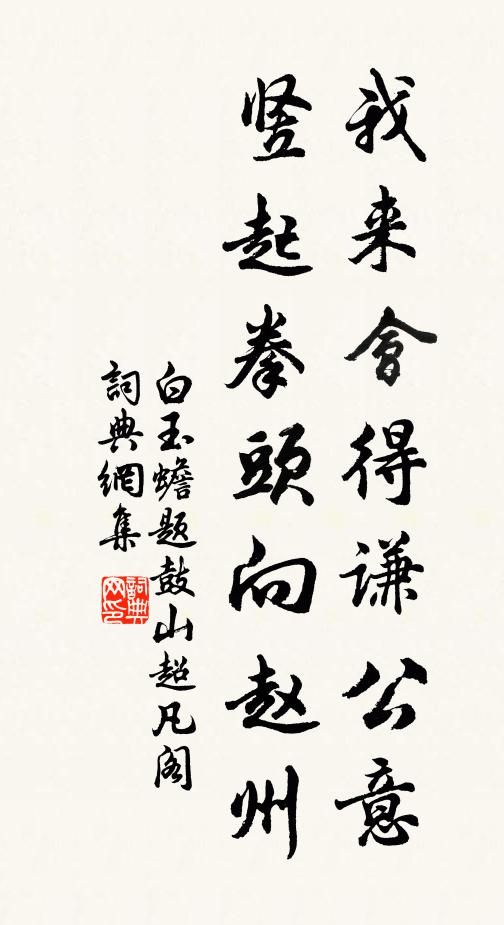 我来會得谦公意
竖起拳頭向赵州
白玉蟾题鼓山超凡阁
詞典網集
詞典網印